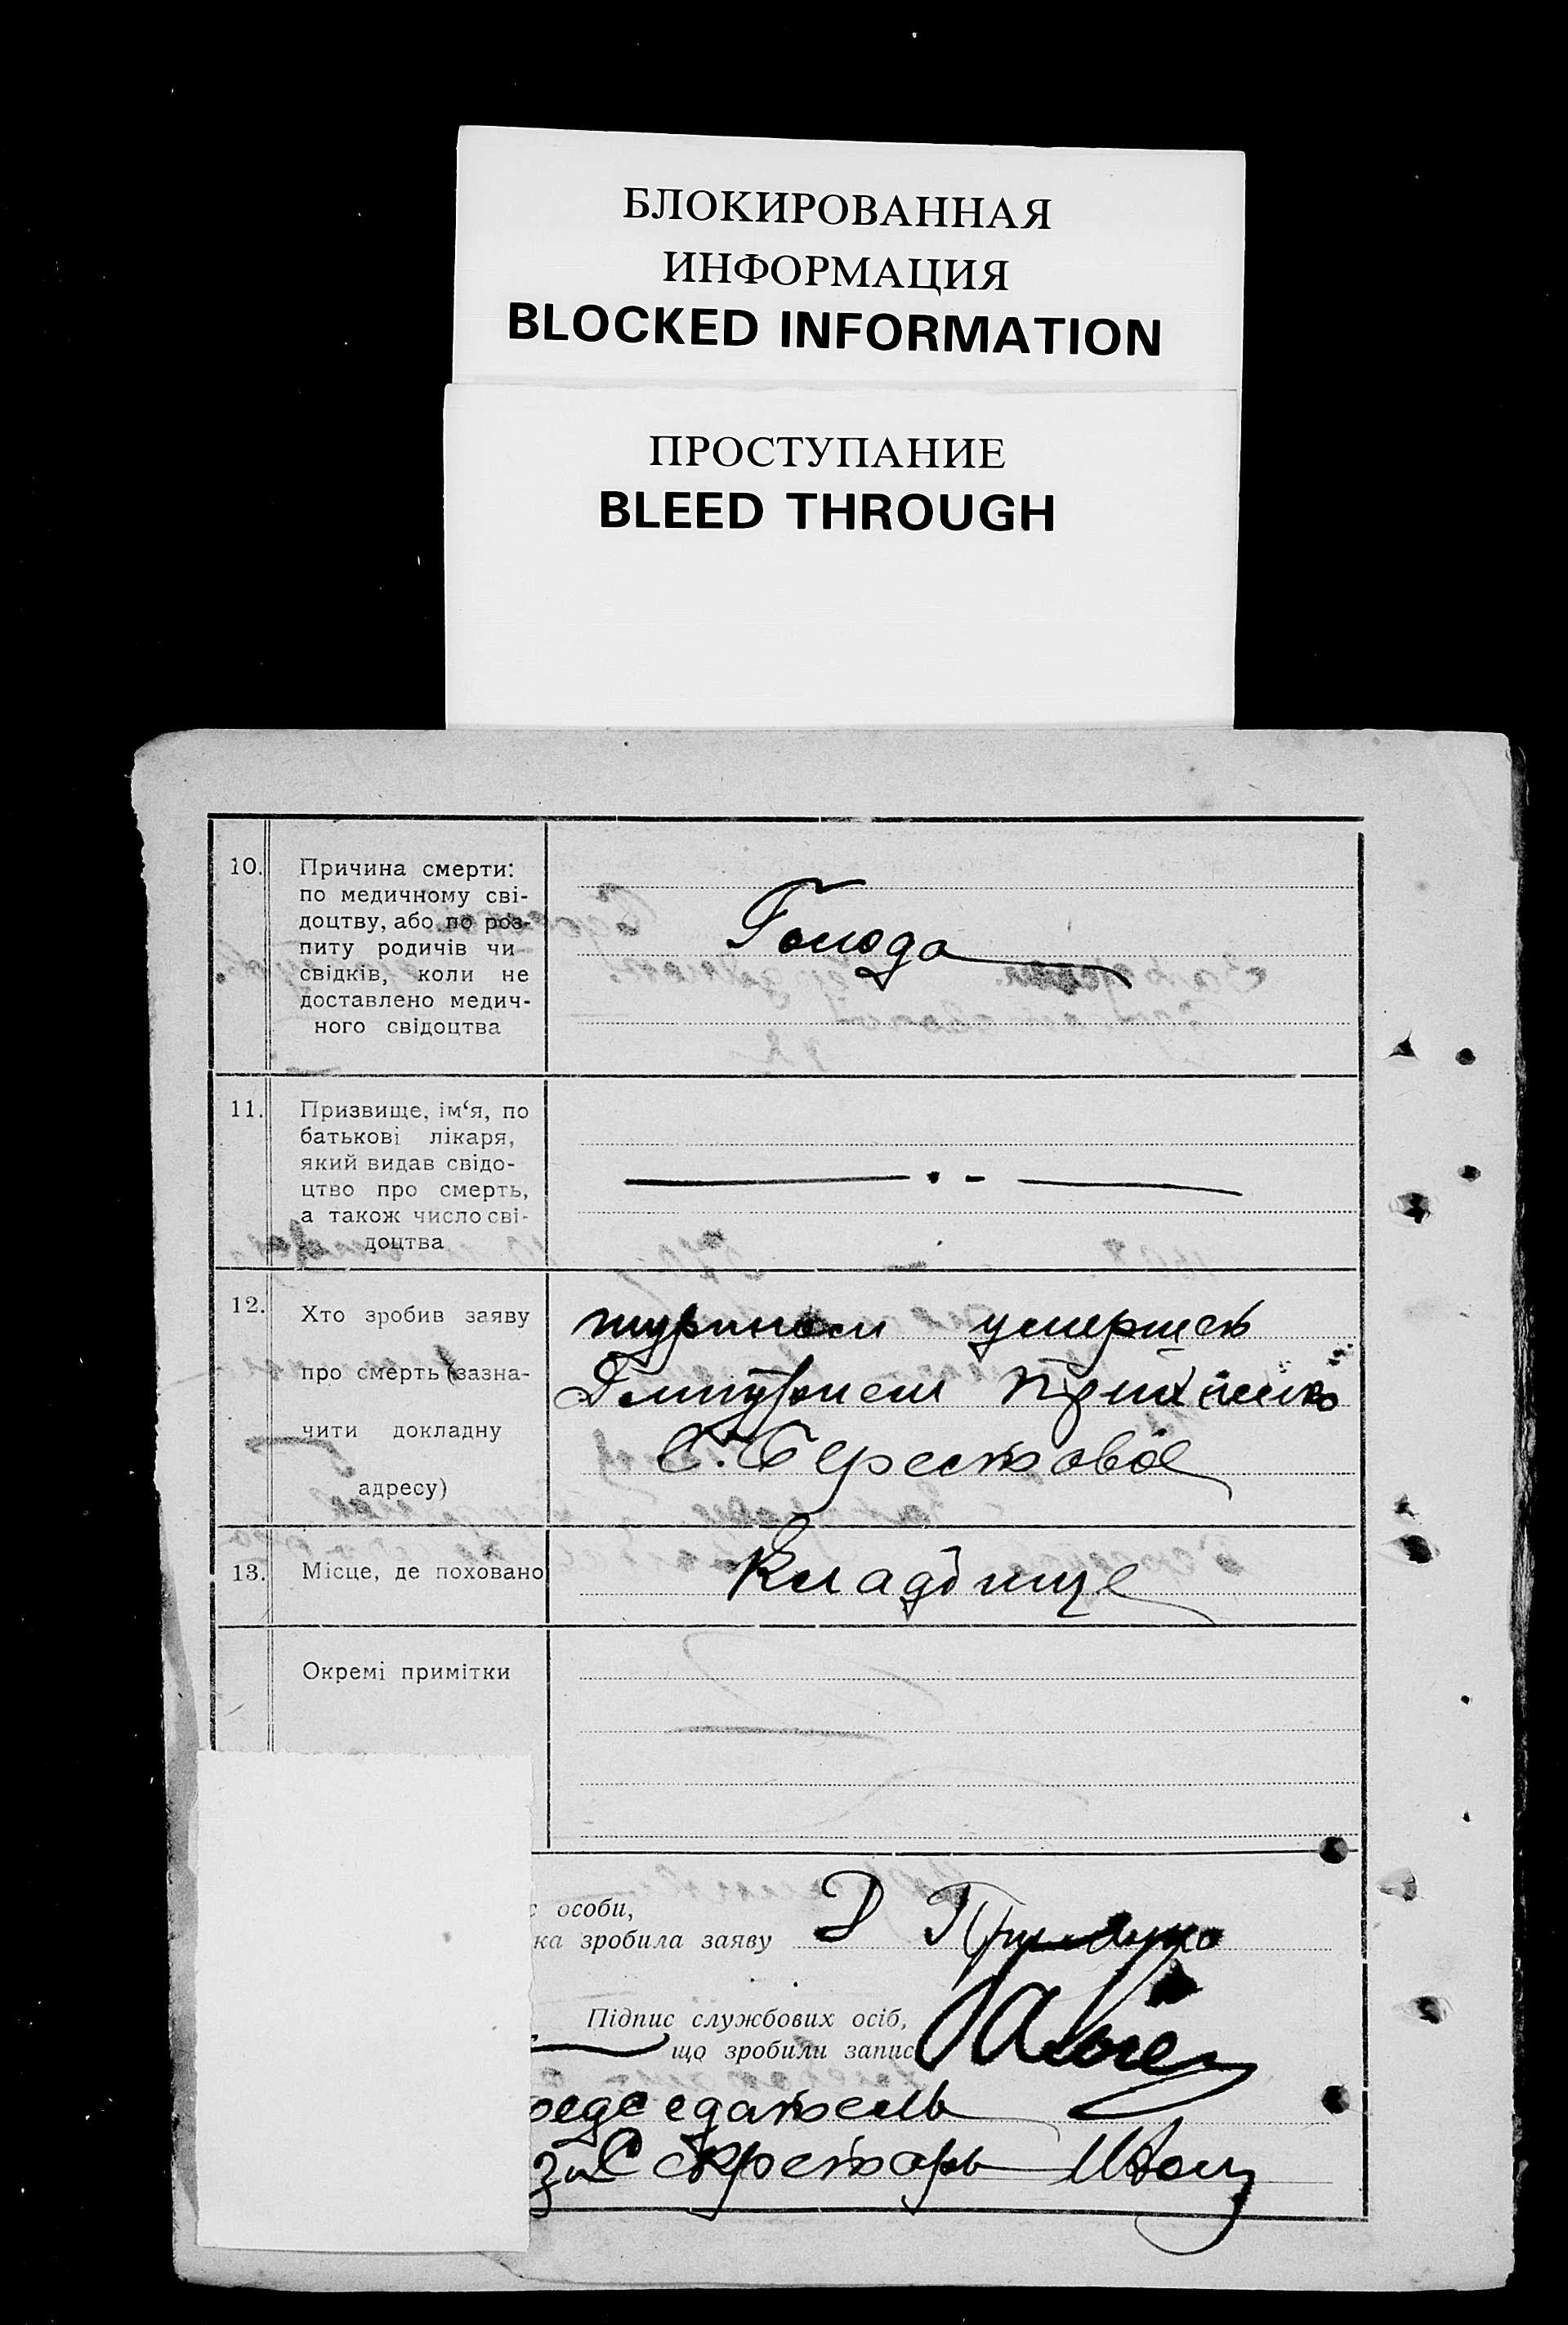 БЛОКИРОВАННАЯ
ИНФОРМАЦИЯ
BLOCKED INFORMATION
ПРОСТУПАНИЕ
BLEED THROUGH
10. Причина смерти:
по медичному сві-
доцтву, або по роз-
питу родичів чи
свідків, коли не
доставлено медич-
ного свідоцтва
Голода
11. Призвище, ім‘я, по
батькові лікаря,
який видав свідо-
цтво про смерть,
а також число сві-
доцтва
12. Хто зробив заяву
про смерть (зазна-
чити докладну
адресу)
умершей
Дмитрием
С. Берестовое
13. Місце, де поховано
Кладбище
Окремі примітки
особи,
ка зробила заяву
Д
Підпис службових осіб,
що зробили запис
редседатель
Секретарь